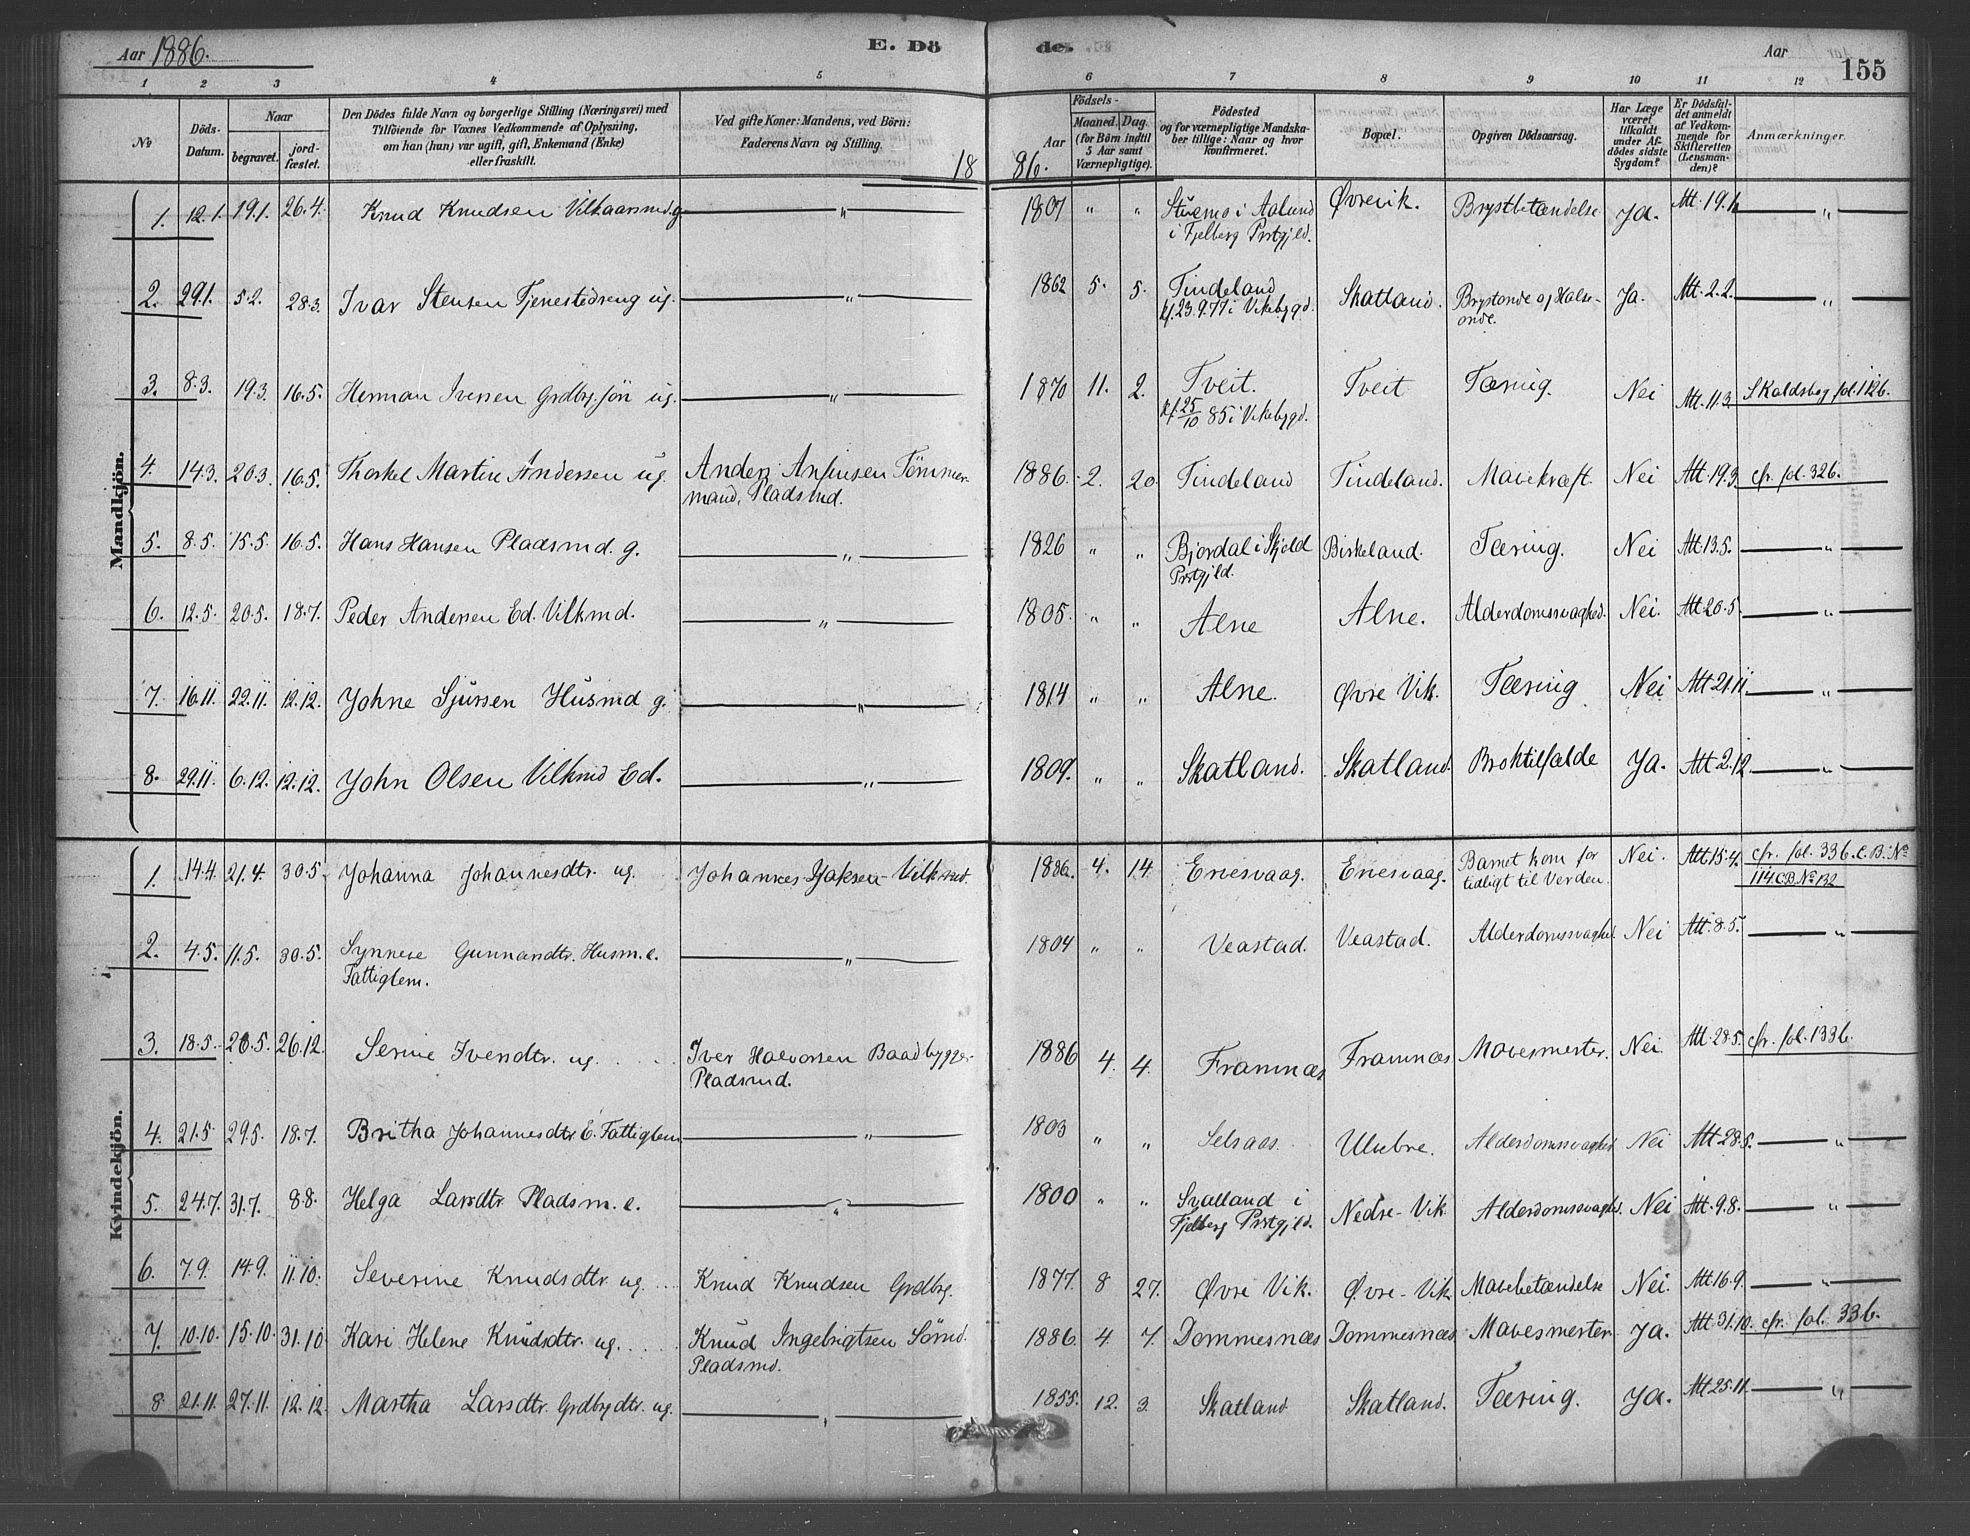 Aar 1886. E. Dö de. Aar 155
1 2 3 4 5 6 7 8 9 10 11 12
No Döds-Datum. Naar begravet. jordfæstet. Den Dödes fulde Navn og borgerlige Stilling (Næringsvei) med Tilföiende for Voxnes Vedkommende af Oplysning, om han (hun) var ugift, gift, Enkemand (Enke) eller fraskilt. Ved gifte Koner: Mandens, ved Börn: Faderens Navn og Stilling. Födsels- Aar Maaned. Dag. (for Börn indtil 5 Aar samt Værnepligtige). Födested og for værnepligtige Mandskaber tillige: Naar og hvor konfirmeret. Bopæl. Opgiven Dödsaarsag. Har Læge været tilkaldt under Afdödes sidste Sygdom? Er Dödsfaldet anmeldt af Vedkommende for Skifteretten (Lensmanden)? Anmærkninger.
1886.
Mandkjön.
1. 12.1. 19.1. 26.4. Knud Knudsen Vilkaarsmd. g. " 1807 " " Øvrevik. Brystbetændelse Ja. Att. 19.1. "
i Fjelberg Prstgjld.
2. 29.1. 5.2. 28.3. Ivar Stensen Tjenestedreng ug. " 1862 5. 5. Tindeland Skatland. Brystonde og Halse- Ja. Att. 2.2. "
kf. 23.9.77 i Vikebygd. onde.
3. 8.3. 19.3. 16.5. Herman Iversen Grdbr. Søn ug. " 1870 11. 2. Tveit. Tveit Tæring. Nei Att. 11.3. Skoldsbog fol. 112 b.
kf. 25/10 85 i Vikebygd.
4. 14.3. 20.3. 16.5. Thorkel Martin Andersen ug. Anders Anfinsen Tømmer- 1886. 2. 20. Tindeland Tindeland. Mavekræft. Nei Att. 19.3. cfr. fol. 32 b.
mand, Pladsmd.
5. 8.5. 15.5. 16.5. Hans Hansen Pladsmd. g. " 1826 " " Bjordal i Skjold Birkeland. Tæring. Nei Att. 13.5. "
Prstgjld.
6. 12.5. 20.5. 18.7. Peder Andersen Ed. Vilkmd. " 1805. " " Alne Alne. Alderdomssvaghed. Nei. Att. 20.5. "
7. 16.11. 22.11. 12.12. Johne Sjursen Husmd g. " 1814 " " Alne. Øvre Vik. Tæring Nei. Att. 21.11. "
8. 29.11. 6.12. 12.12. John Olsen Vilkmd Ed. " 1809. " " Skatland. Skatland. Broktilfælde Ja. Att. 2.12. "
Kvindekjön.
1. 14.4. 21.4. 30.5. Johanna Johannesdtr. ug. Johannes Jaksen Vilkmd. 1886. 4. 14. Eriesvaag. Eriesvaag. Barnet kom for Nei. Att. 15.4. cfr. fol. 33 b. C.B. No
tidligt til Verden. 114. CB No 132
2. 4.5. 11.5. 30.5. Synneve Gunnarsdtr. Husm. e. " 1804 " " Veastad. Veastad. Alderdomssvaghed. Nei Att. 8.5. "
Fattiglem.
3. 18.5. 26.5. 26.12. Serine Iversdtr. ug. Iver Halvorsen Baadbygger 1886 4. 4. Framnæs Framnæs Mavesmerter. Nei. Att. 28.5. cfr. fol. 133 b.
Pladsmd.
4. 21.5 29.5. 18.7. Britha Johannesdtr. E. Fattiglem " 1803 " " Selsaas. Ulvebre. Alderdomssvaghed Nei Att. 28.5. "
5. 24.7. 31.7. 8.8. Helga Larsdtr. Pladsm. e. " 1800 " " Svalland i Nedre-Vik Alderdomssvaghed. Nei Att. 9.8. "
Fjelberg Prstgjld.
6. 7.9. 14.9. 11.10. Severine Knudsdtr. ug. Knud Knudsen Grdbr. 1877. 8 27. Øvre Vik. Øvre-Vik Mavebetændelse Nei. Att. 16.9. "
7. 10.10. 15.10. 31.10 Kari Helene Knudsdtr. ug. Knud Ingebrigtsen Sømd. 1886. 4 7. Dommesnæs Dommesnæs Mavesmerter Ja. Att. 31.10. cfr. fol. 33 b.
Pladsmd.
8 21.11. 27.11. 12.12. Martha Larsdtr. Grdbrdtr. ug. " 1855. 12. 3. Skatland Skatland. Tæring. Ja. Att. 25.11. "